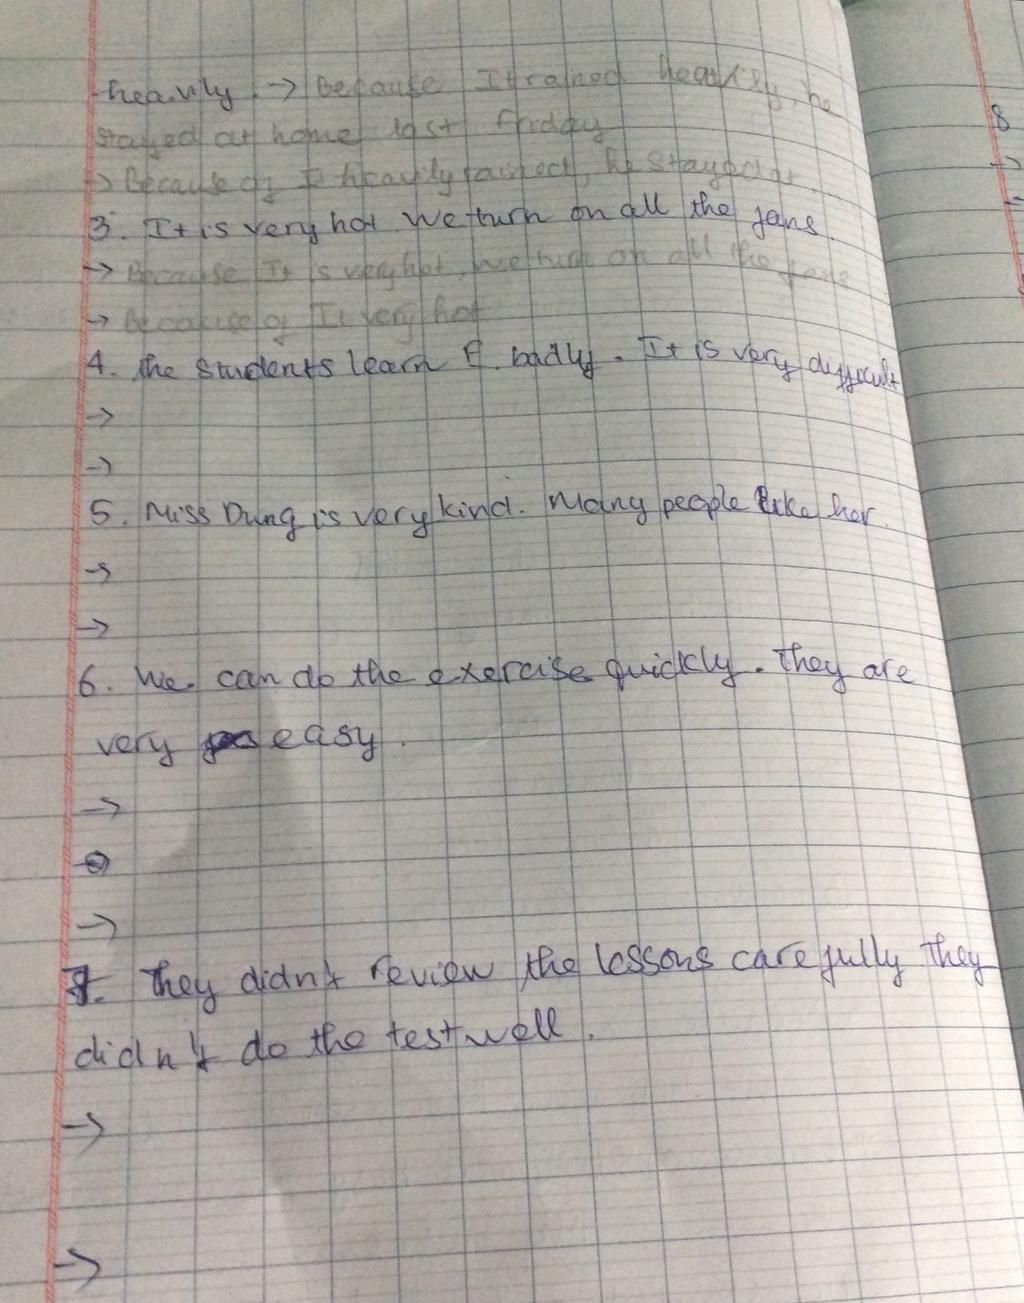 heavily. -> Because It rained heavily, he
stayed at home last friday
-> Because of I heavily rained, he stayed at
3. It is very hot. We turn on all the fans.
-> Because It is very hot, we turn on all the fans
-> Because of It very hot
4. The students learn E badly. It is very difficult
->
->
5. Miss Dung is very kind. Many people like her.
->
->
6. We can do the exercise quickly. They are
very easy.
->
->
->
7. They didn't review the lessons carefully They
didn't do the test well.
->
->
8
->